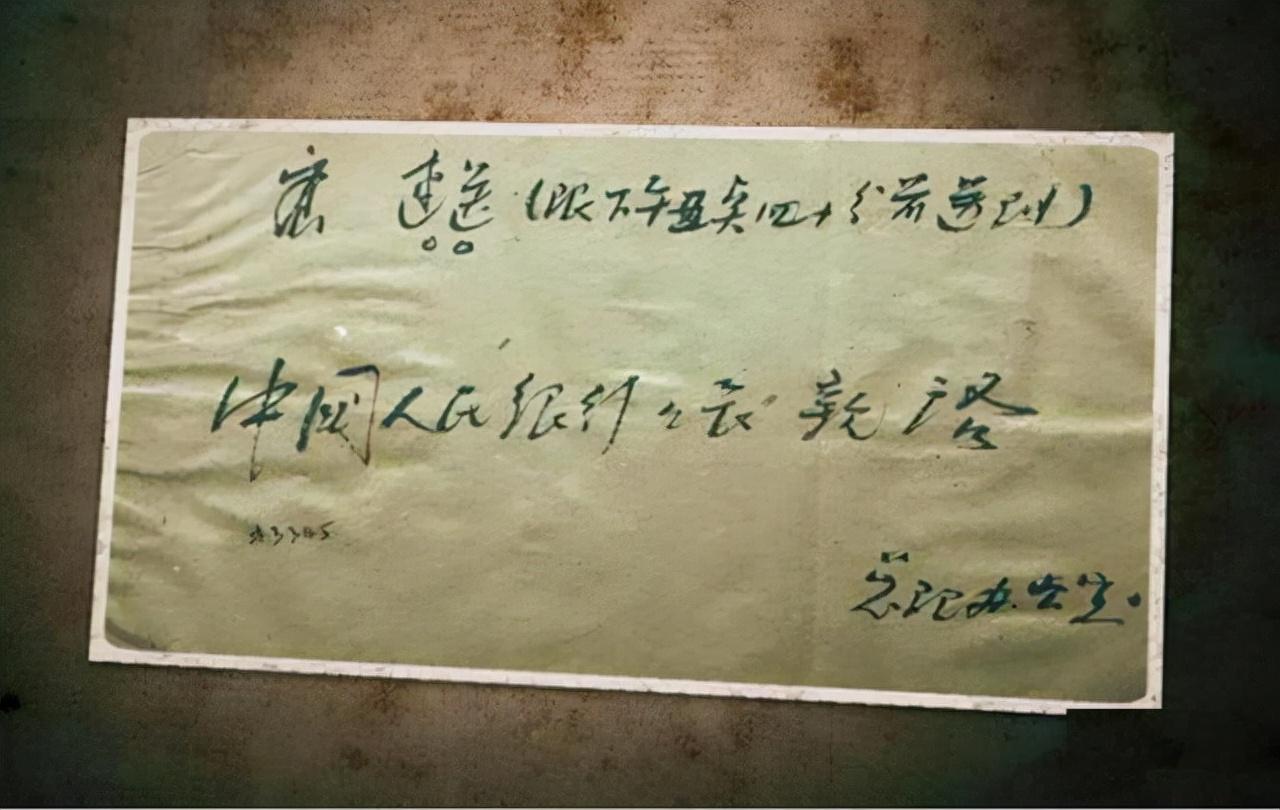 密 速送（限下午五点四十分前送到）
中国人民银行々长 亲启
总理办公室